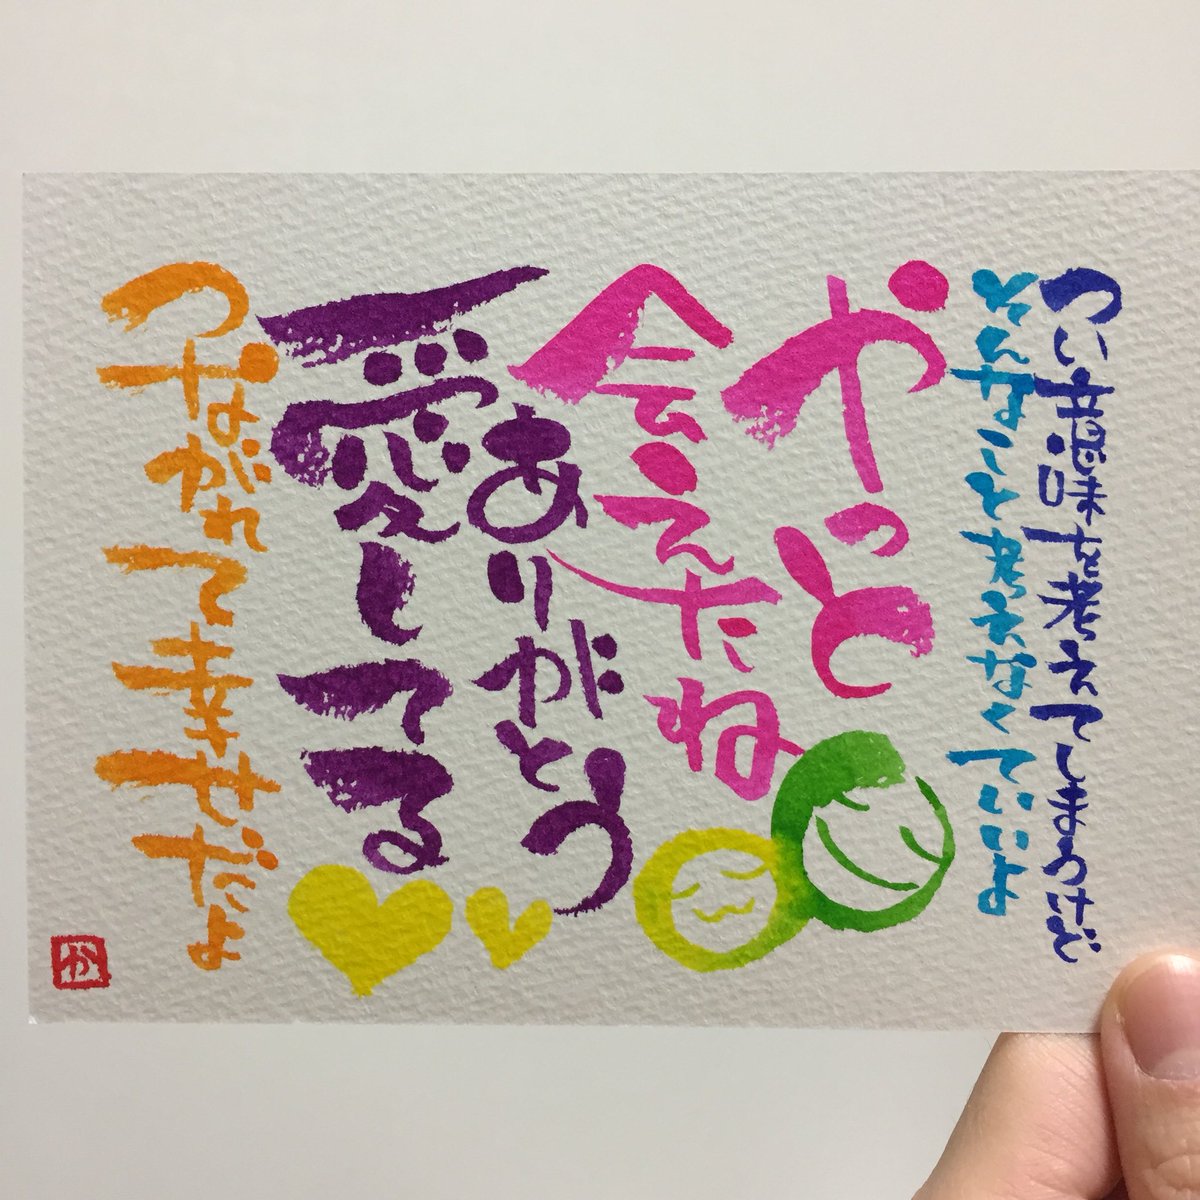 つい意味を考えてしまうけど
そんなこと考えなくていいよ
やっと
会えたね
ありがとう
愛してる
つながれて幸せだよ
か